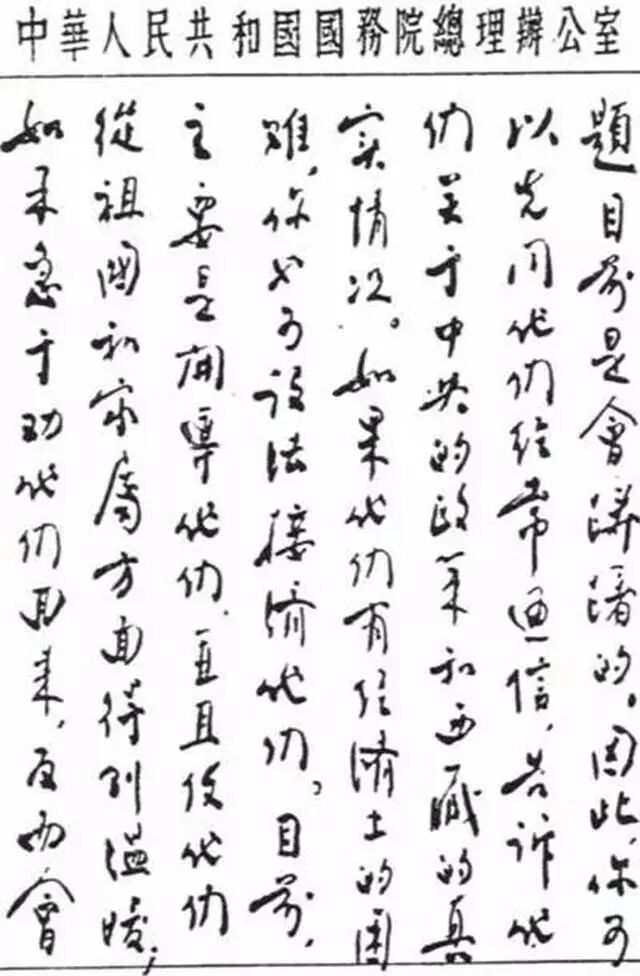 中華人民共和國國務院總理辦公室
題目前是會議論的。因此，你可
以先同他们经常通信，告诉他
们关于中共的政策和西藏的真
实情况。如果他们有经济上的困
难，你也可设法接济他们。目前，
主要是開導他们，並且使他们
從祖國和家属方面得到温暖，
如果急于劝他们回来，反而會